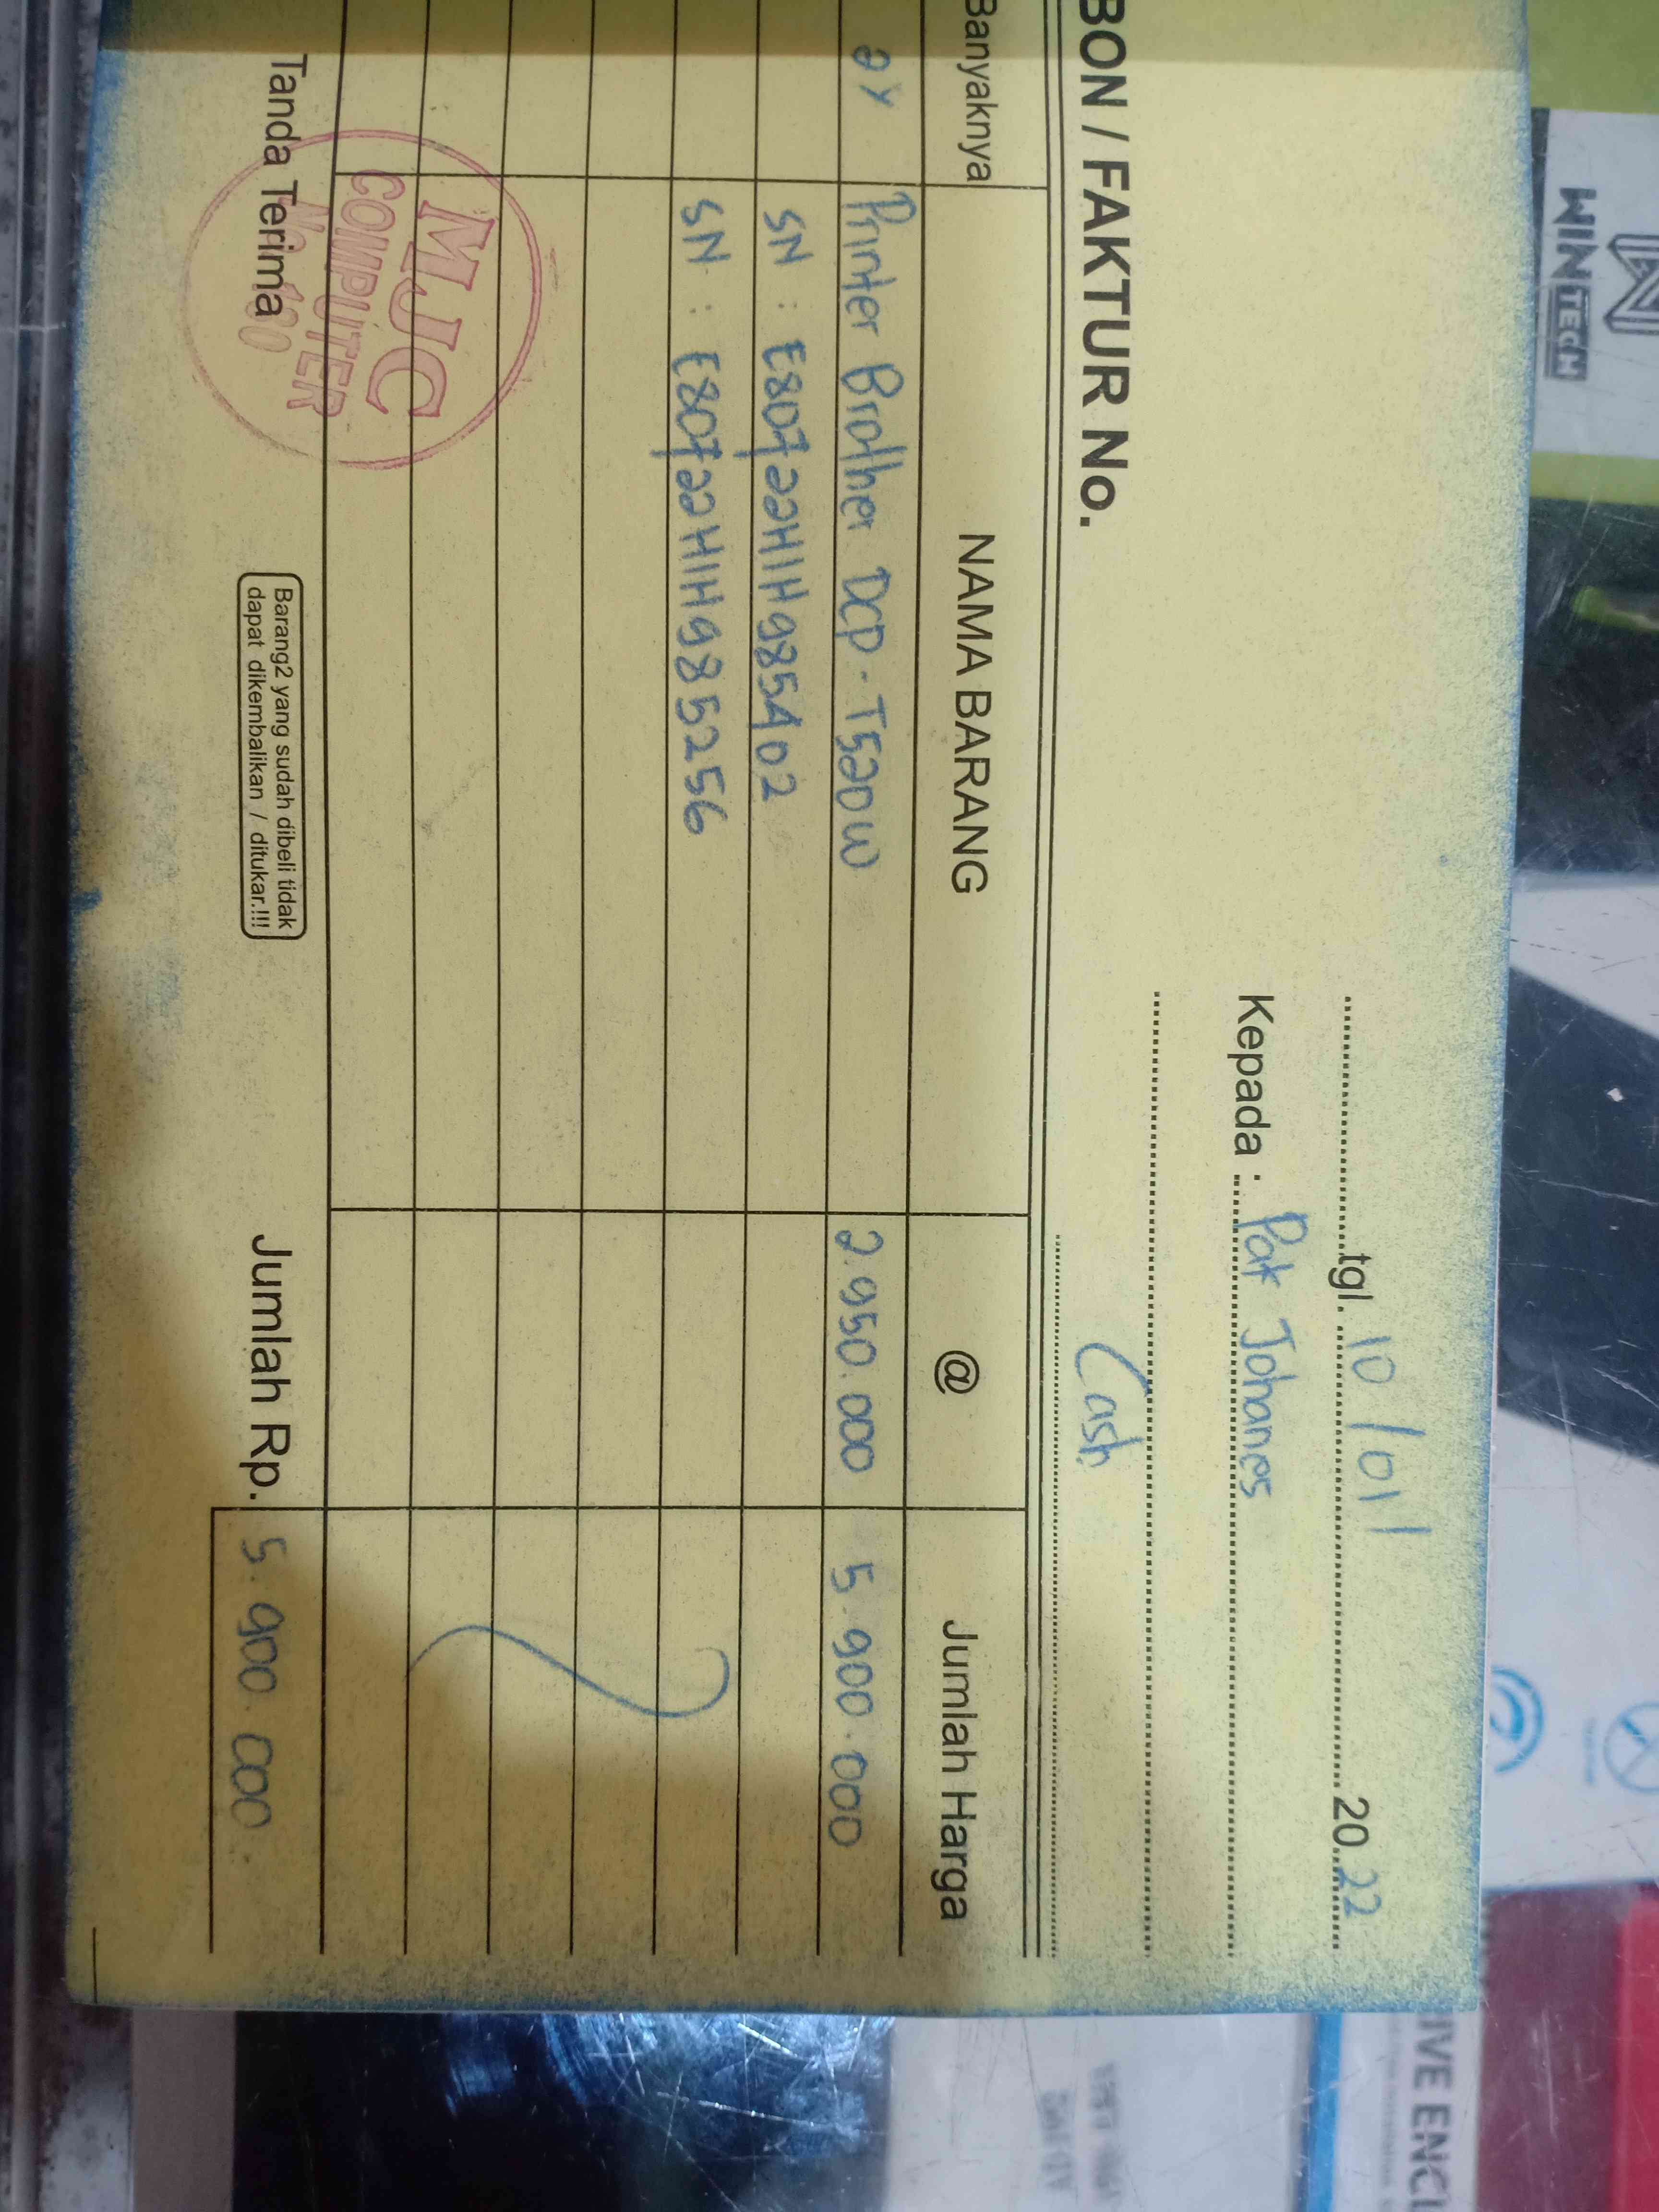 tgl. 10/01/ 2022
Kepada : Pak Johanes
BON / FAKTUR No.
Cash
Banyaknya NAMA BARANG @ Jumlah Harga
2x Printer Brother DCP-T520W 2.950.000 5.900.000
SN : E80722H1H985402
SN : E80722H1H985256
MJC
COMPUTER
Tanda Terima
Barang2 yang sudah dibeli tidak
dapat dikembalikan / ditukar.!!!
Jumlah Rp. 5.900.000.
WINTECH